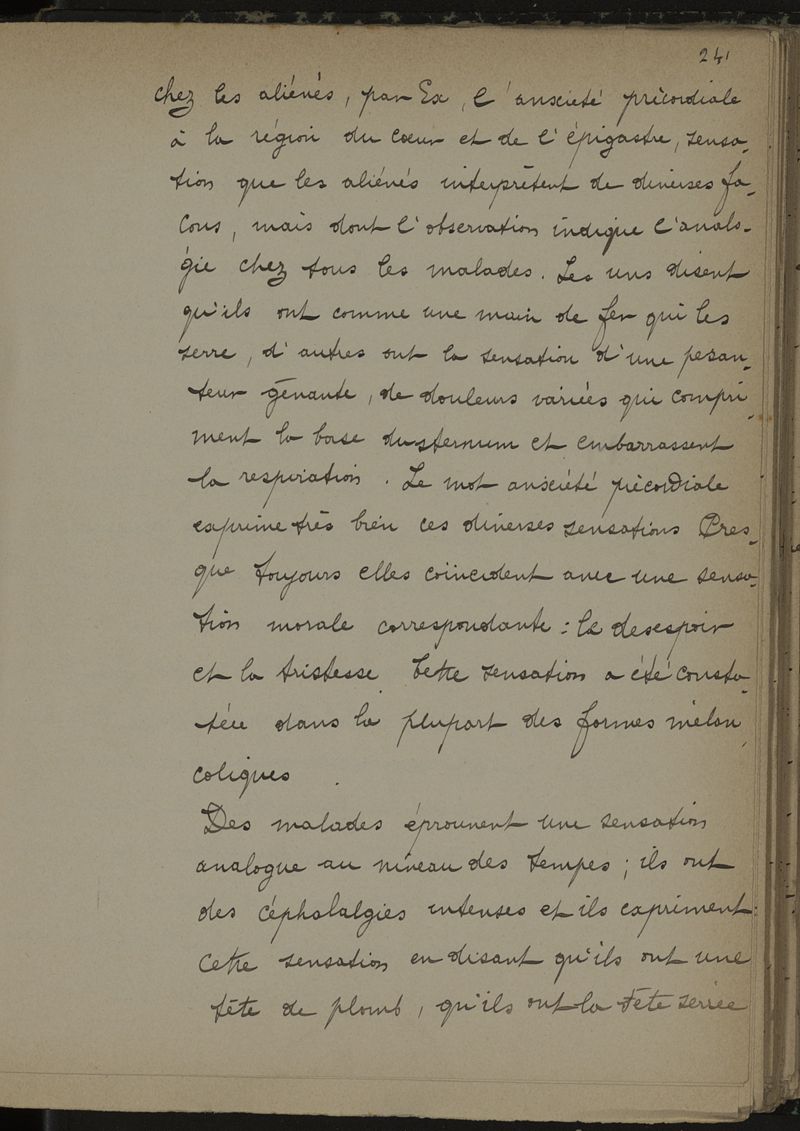 241
chez les aliénés, par Ex, l'anxiété précordiale
à la région du cœur et de l'épigastre, sensa-
tion que les aliénés interprètent de diverses fa-
çons, mais dont l'observation indique l'analo-
gie chez tous les malades. Les uns disent
qu'ils ont comme une main de fer qui les
serre, d'autres ont la sensation d'une pesan-
teur gênante, de douleurs variées qui compri-
ment la base du sternum et embarrassent
la respiration. Le mot anxiété précordiale
exprime très bien ces diverses sensations Pres-
que toujours elles coïncident avec une sensa-
tion morale correspondante : le desespoir
et la tristesse. Cette sensation a été consta-
tée dans la plupart des formes mélan-
coliques.
Des malades éprouvent une sensation
analogue au niveau des tempes ; ils ont
des céphalalgies intenses et ils expriment
cette sensation en disant qu'ils ont une
tête de plomb, qu'ils ont la tête serrée